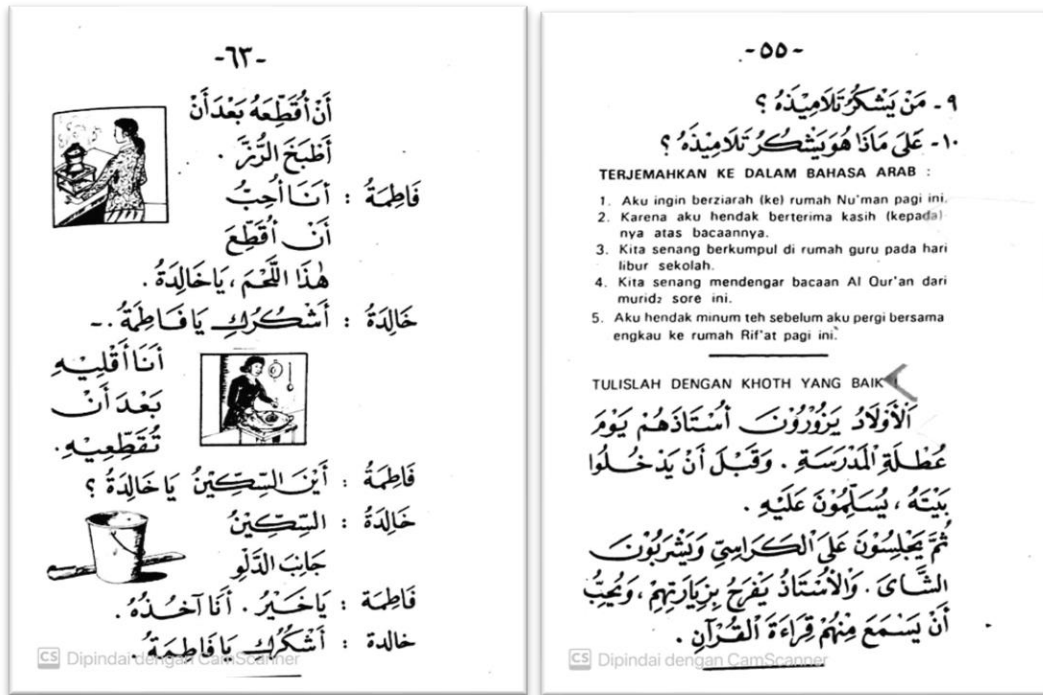 -٦٣-
أَنْ أُقَطِّعَهُ بَعْدَ أَنْ
أَطْبَخَ الرُّزَّ .
فَاطِمَةُ : أَنَا أُحِبُّ
أَنْ أُقَطِّعَ
هٰذَا اللَّحْمَ ، يَا خَالِدَةُ .
خَالِدَةُ : أَشْكُرُكِ يَا فَاطِمَةُ .-
أَنَا أَقْلِيْهِ
بَعْدَ أَنْ
تُقَطِّعِيْهِ.
فَاطِمَةُ : أَيْنَ السِّكِّيْنُ يَا خَالِدَةُ ؟
خَالِدَةُ : السِّكِّيْنُ
جَانِبَ الدَّلْوِ
فَاطِمَة : يَاخَيْرُ . أَنَا آخُذُهُ .
خالدة : أَشْكُرُكِ يَا فَاطِمَةُ .
CS Dipindai dengan CamScanner
-٥٥-
٩ - مَنْ يَشْكُرُ تَلَامِيْذَهُ ؟
١٠- عَلَى مَاذَا هُوَ يَشْكُرُ تَلَامِيْذَهُ ؟
TERJEMAHKAN KE DALAM BAHASA ARAB :
1. Aku ingin berziarah (ke) rumah Nu'man pagi ini.
2. Karena aku hendak berterima kasih (kepada)
nya atas bacaannya.
3. Kita senang berkumpul di rumah guru pada hari
libur sekolah.
4. Kita senang mendengar bacaan Al Qur'an dari
murid₂ sore ini.
5. Aku hendak minum teh sebelum aku pergi bersama
engkau ke rumah Rif'at pagi ini.
TULISLAH DENGAN KHOTH YANG BAIK
اَلْأَوْلَادُ يَزُوْرُوْنَ أُسْتَاذَهُمْ يَوْمَ
عُطْلَةِ الْمَدْرَسَةِ . وَقَبْلَ أَنْ يَدْخُلُوا
بَيْتَهُ ، يُسَلِّمُوْنَ عَلَيْهِ .
ثُمَّ يَجْلِسُوْنَ عَلَى الْكَرَاسِيِّ وَيَشْرَبُوْنَ
الشَّايَ . وَالْأُسْتَاذُ يَفْرَحُ بِزِيَارَتِهِمْ ، وَيُحِبُّ
أَنْ يَسْمَعَ مِنْهُمْ قِرَاءَةَ الْقُرْآنِ .
CS Dipindai dengan CamScanner